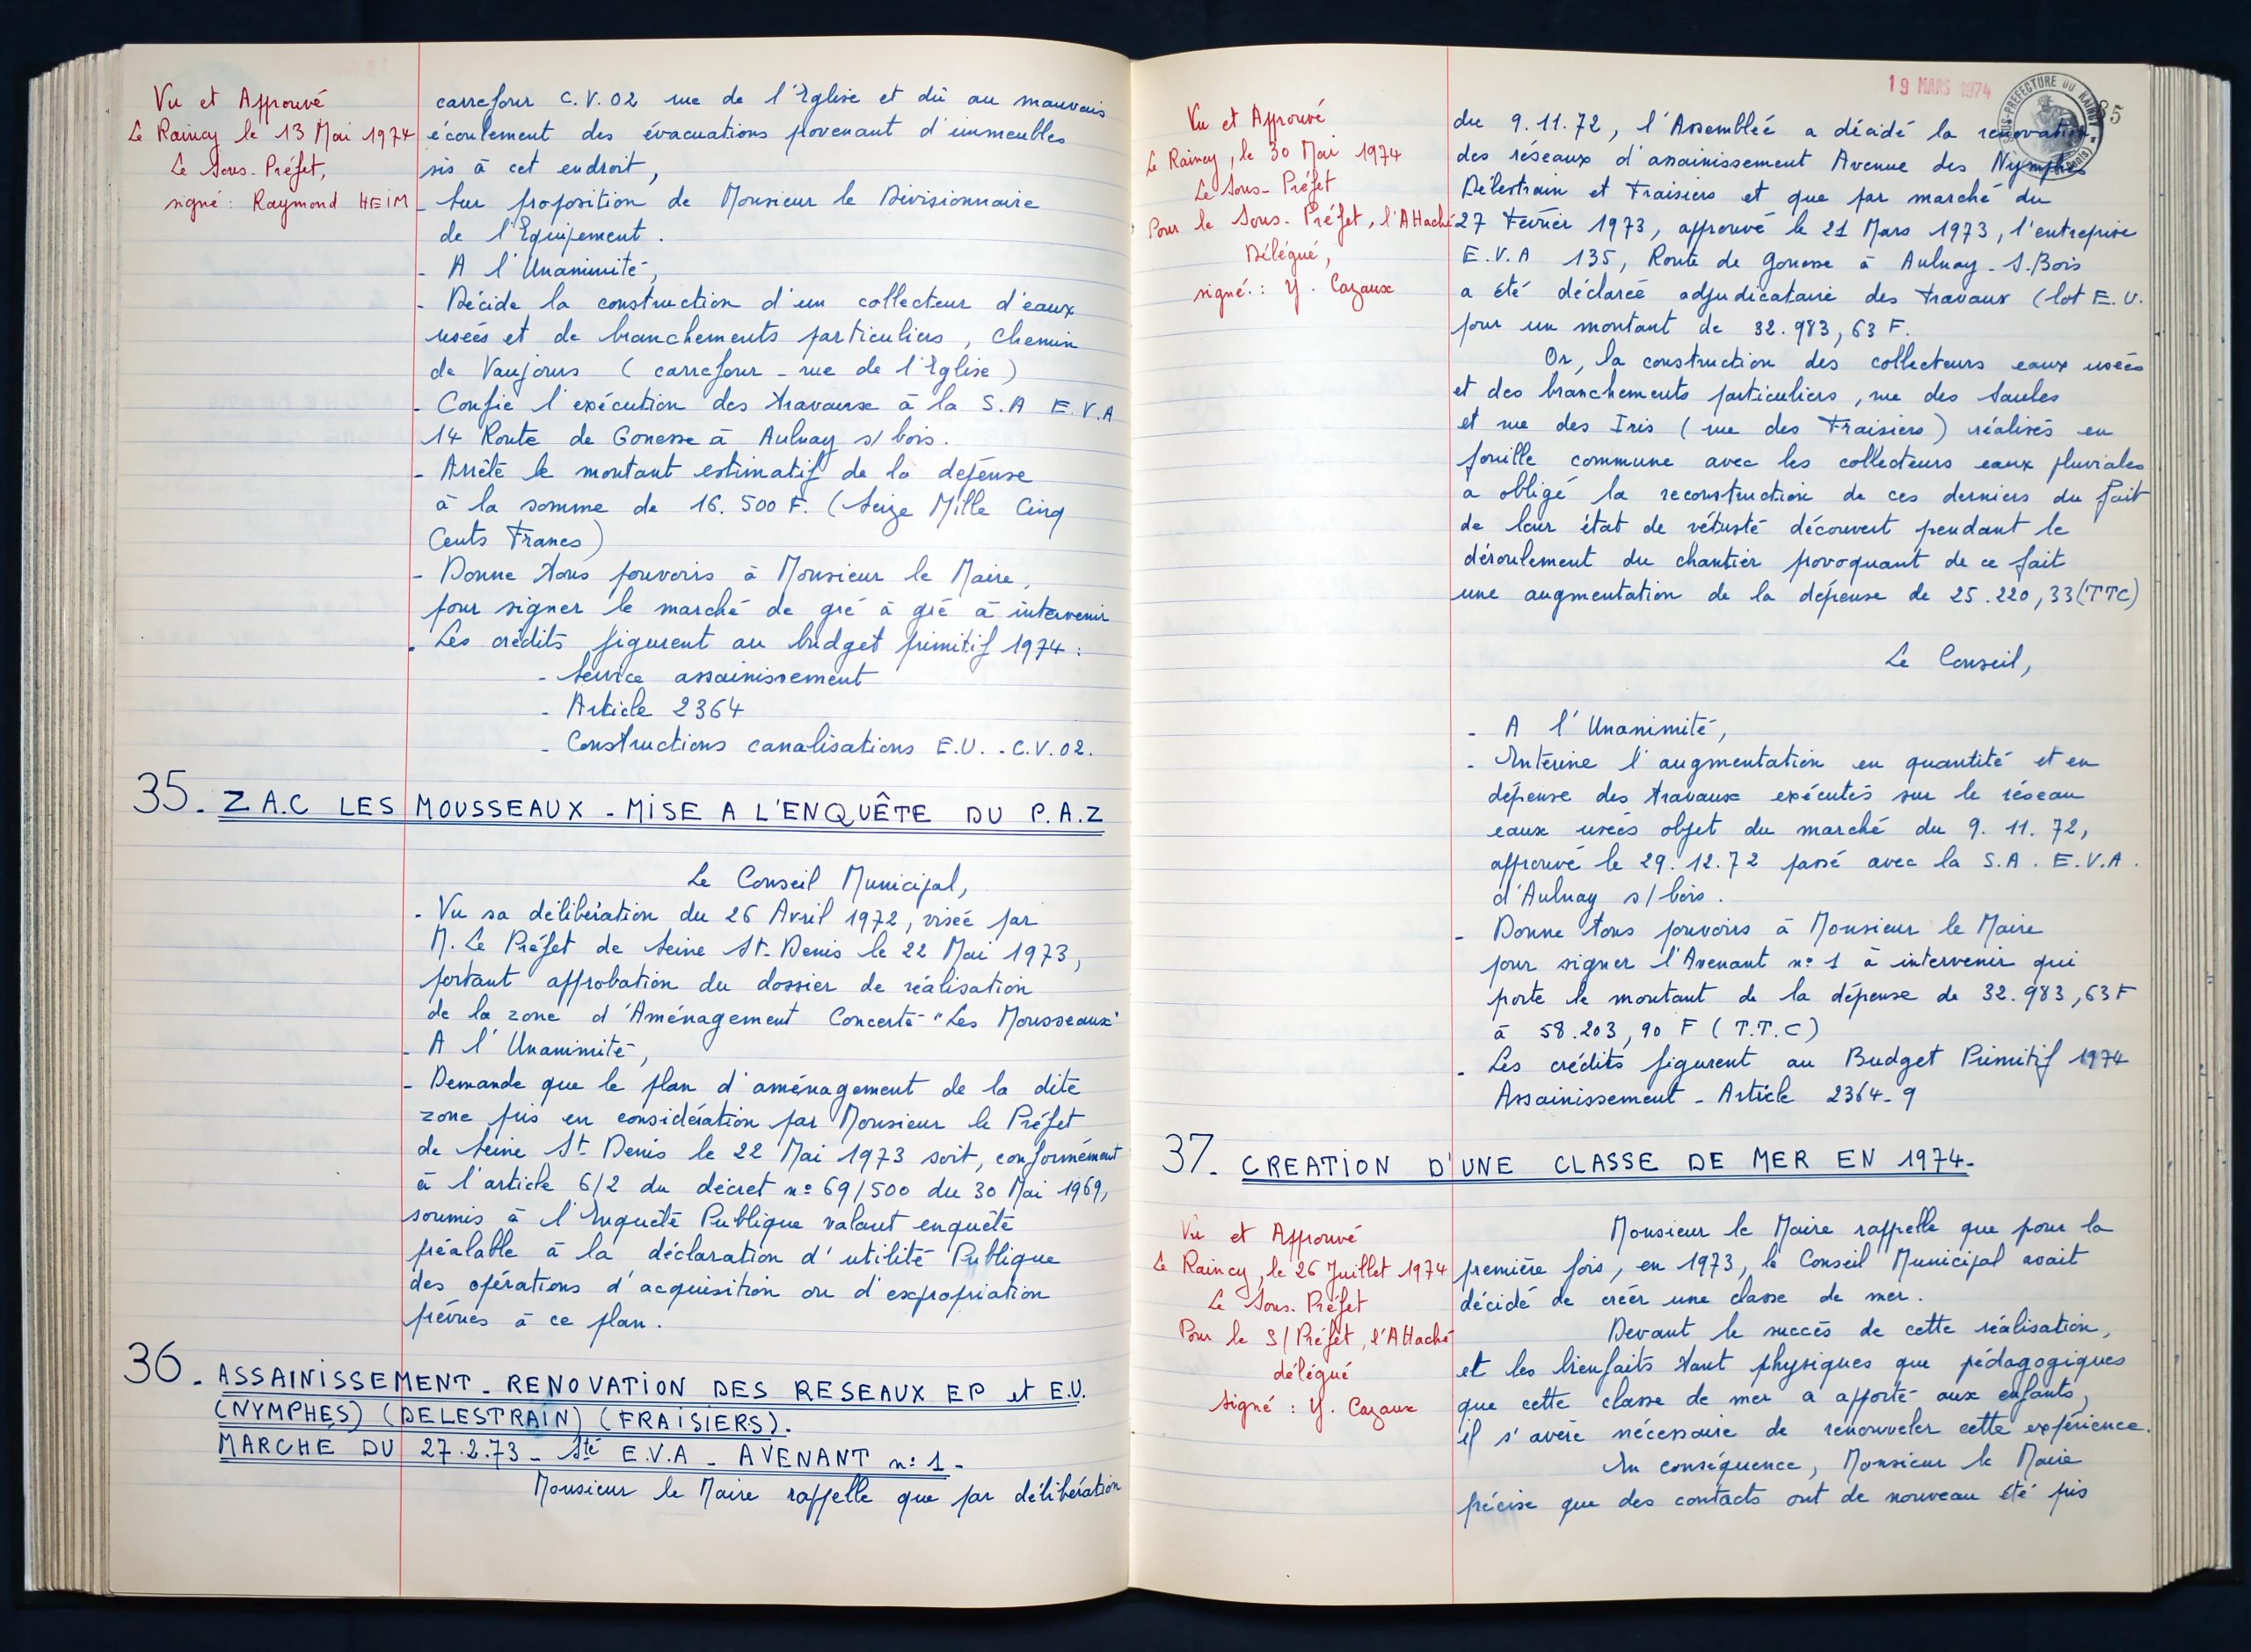 Vu et Approuvé
Le Raincy le 13 Mai 1974
Le Sous-Préfet,
signé : Raymond HEIM
carrefour C.V.02 rue de l'Eglise et dû au mauvais
écoulement des évacuations provenant d'immeubles
sis à cet endroit,
- Sur proposition de Monsieur le Divisionnaire
de l'Equipement.
- A l'Unanimité,
- Décide la construction d'un collecteur d'eaux
usées et de branchements particuliers, Chemin
de Vaujours (carrefour - rue de l'Eglise)
- Confie l'exécution des travaux à la S.A E.V.A
14 Route de Gonesse à Aulnay s/ bois.
- Arrête le montant estimatif de la dépense
à la somme de 16.500 F. (Seize Mille Cinq
Cents Francs)
- Donne tous pouvoirs à Monsieur le Maire,
pour signer le marché de gré à gré à intervenir
. Les crédits figurent au budget primitif 1974 :
- Service assainissement
- Article 2364
- Constructions canalisations E.U. - C.V.02.
35. Z A.C LES MOUSSEAUX - MISE A L'ENQUÊTE DU P.A.Z
Le Conseil Municipal,
- Vu sa délibération du 26 Avril 1972, visée par
M. Le Préfet de Seine St-Denis le 22 Mai 1973,
portant approbation du dossier de réalisation
de la zone d'Aménagement Concerté "Les Mousseaux"
- A l'Unanimité,
- Demande que le plan d'aménagement de la dite
zone pris en considération par Monsieur le Préfet
de Seine St Denis le 22 Mai 1973 soit, conformément
à l'article 6/2 du décret n° 69/500 du 30 Mai 1969,
soumis à l'Enquête Publique valant enquête
préalable à la déclaration d'utilité Publique
des opérations d'acquisition ou d'expropriation
prévues à ce plan.
36. ASSAINISSEMENT - RENOVATION DES RESEAUX EP et E.U.
(NYMPHES) (DELESTRAIN) (FRAISIERS).
MARCHE DU 27.2.73 - Sté E.V.A - AVENANT n° 1 -
Monsieur le Maire rappelle que par délibération
19 MARS 1974
SOUS-PREFECTURE DU RAINCY
85
Vu et Approuvé
Le Raincy, le 30 Mai 1974
Le Sous-Préfet
Pour le Sous-Préfet, l'Attaché
Délégué,
signé : Y. Cazaux
du 9.11.72, l'Assemblée a décidé la renovation
des réseaux d'assainissement Avenue des Nymphes
Delestrain et Fraisiers et que par marché du
27 Février 1973, approuvé le 21 Mars 1973, l'entreprise
E.V.A 135, Route de Gonesse à Aulnay-S.Bois
a été déclarée adjudicataire des travaux (lot E.U.
pour un montant de 32.983,63 F.
Or, la construction des collecteurs eaux usées
et des branchements particuliers, rue des Saules
et rue des Iris (rue des Fraisiers) réalisés en
fouille commune avec les collecteurs eaux pluviales
a obligé la reconstruction de ces derniers du fait
de leur état de vétusté découvert pendant le
déroulement du chantier provoquant de ce fait
une augmentation de la dépense de 25.220,33(TTC)
Le Conseil,
- A l'Unanimité,
- Entérine l'augmentation en quantité et en
dépense des travaux exécutés sur le réseau
eaux usées objet du marché du 9.11.72,
approuvé le 29.12.72 passé avec la S.A. E.V.A.
d'Aulnay s/bois.
- Donne tous pouvoirs à Monsieur le Maire
pour signer l'Avenant n° 1 à intervenir qui
porte le montant de la dépense de 32.983,63 F
à 58.203,90 F (T.T.C)
- Les crédits figurent au Budget Primitif 1974
Assainissement - Article 2364-9
37. CREATION D'UNE CLASSE DE MER EN 1974-
Vu et Approuvé
Le Raincy, le 26 Juillet 1974
Le Sous-Préfet
Pour le S/Préfet, l'Attaché
délégué
Signé : Y. Cazaux
Monsieur le Maire rappelle que pour la
première fois, en 1973, le Conseil Municipal avait
décidé de créer une classe de mer.
Devant le succès de cette réalisation,
et les bienfaits tant physiques que pédagogiques
que cette classe de mer a apporté aux enfants,
il s'avère nécessaire de renouveler cette expérience.
En conséquence, Monsieur le Maire
précise que des contacts ont de nouveau été pris